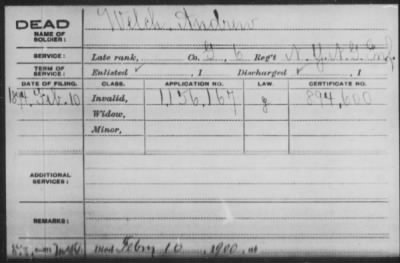 DEAD
NAME OF SOLDIER: Welch, Andrew
SERVICE: Late rank, Co. G. 6 Reg't N.Y.
TERM OF SERVICE: Enlisted , 1 Discharged , 1
DATE OF FILING. CLASS. APPLICATION NO. LAW. CERTIFICATE NO.
Feb. 10 Invalid, 1,156,167 g 894,600
Widow,
Minor,
ADDITIONAL SERVICES:
REMARKS:
Died Feby 10, 1900, at